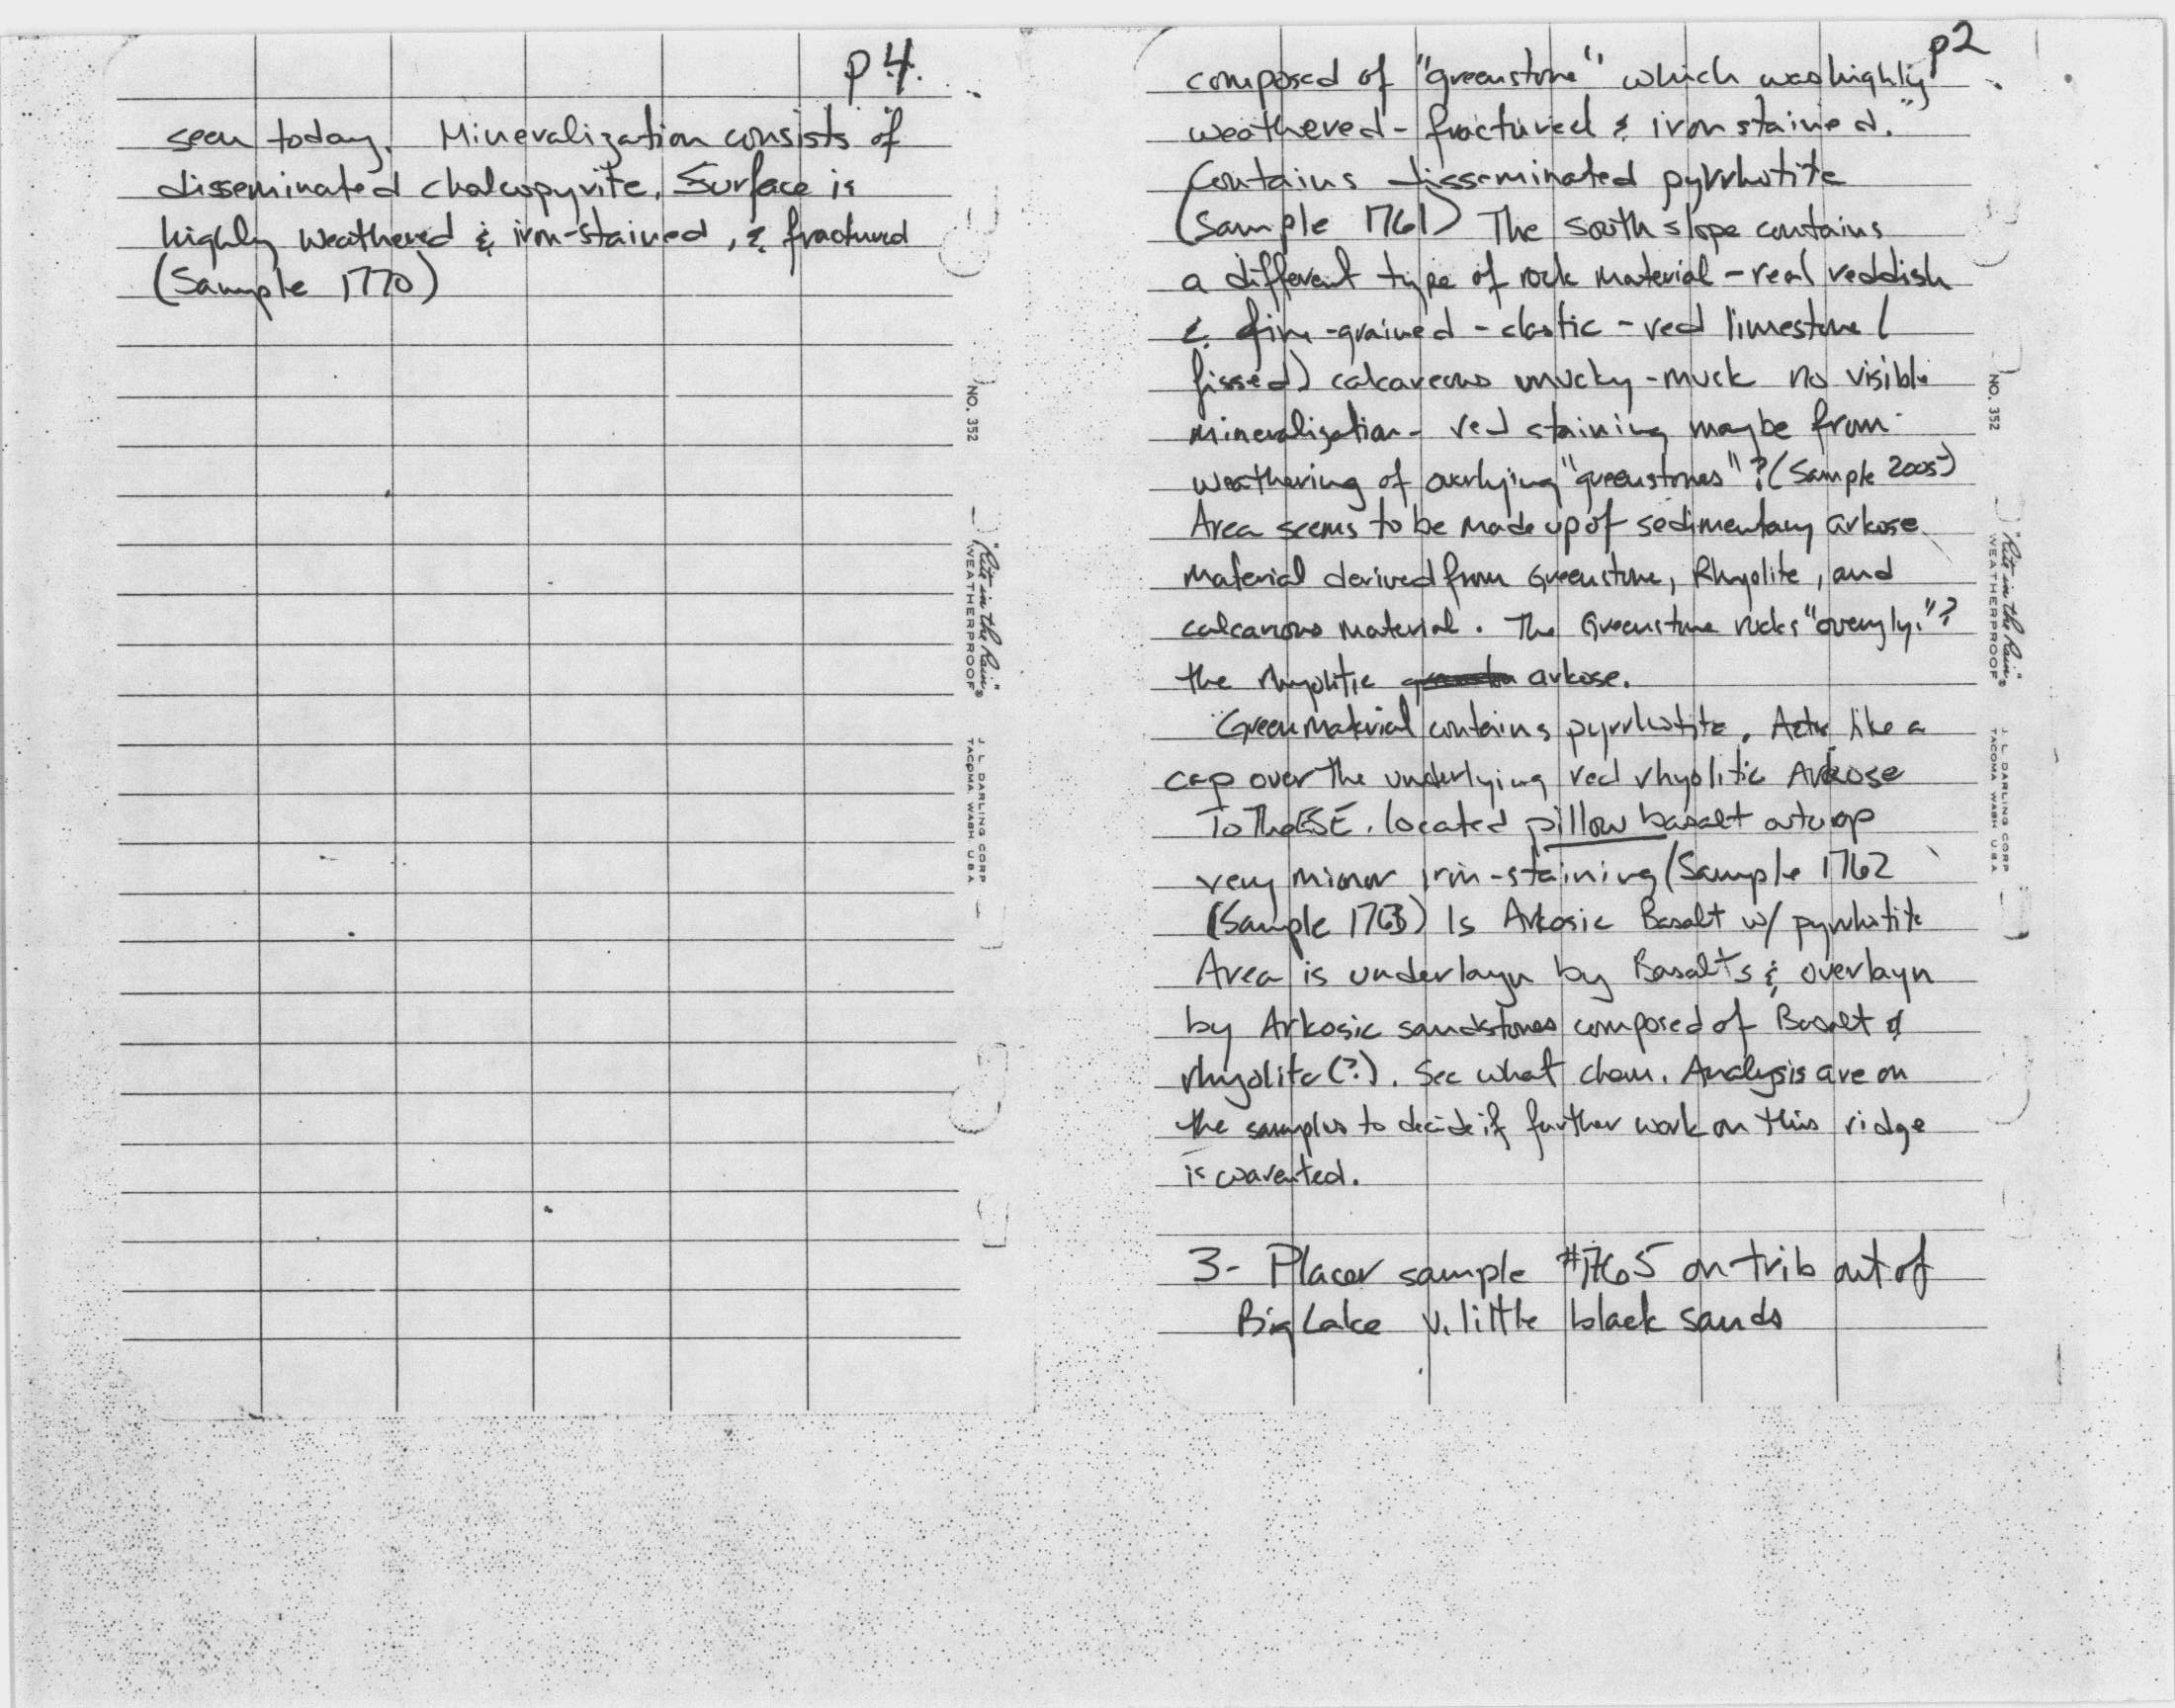 p 4.
seen today. Mineralization consists of
disseminated chalcopyrite. Surface is
highly weathered & iron-stained, & fractured
(Sample 1770)
NO. 352
"Rite in the Rain"®
WEATHERPROOF
J. L. DARLING CORP
TACOMA WASH U.S.A
p2
composed of "greenstone" which was highly
weathered - fractured & iron stained."
Contains disseminated pyrrhotite
(Sample 1761) The South slope contains
a different type of rock material - real reddish
& fine-grained - clastic - red limestone (
fissed) calcareous mucky-muck no visible
mineralization - red staining maybe from
weathering of overlying "greenstones"? (Sample 2005)
Area seems to be made up of sedimentary arkose
material derived from Greenstone, Rhyolite, and
calcarous material. The Greenstone rocks "overyly."?
the rhyolitic arkose.
Green material contains pyrrhotite. Acts like a
cap over the underlying red rhyolitic Arkose
To The ESE. located pillow basalt outcrop
very minor iron-staining (Sample 1762
(Sample 1763) Is Arkosic Basalt w/ pyrrhotite
Area is underlayn by Basalts & overlayn
by Arkosic sandstones composed of Basalt &
rhyolite (?). See what chem. Analysis are on
the samples to decide if further work on this ridge
is warented.
3- Placer sample #1765 on trib out of
Big Lake v. little black sands
NO. 352
"Rite in the Rain"®
WEATHERPROOF
J. L. DARLING CORP
TACOMA WASH U.S.A